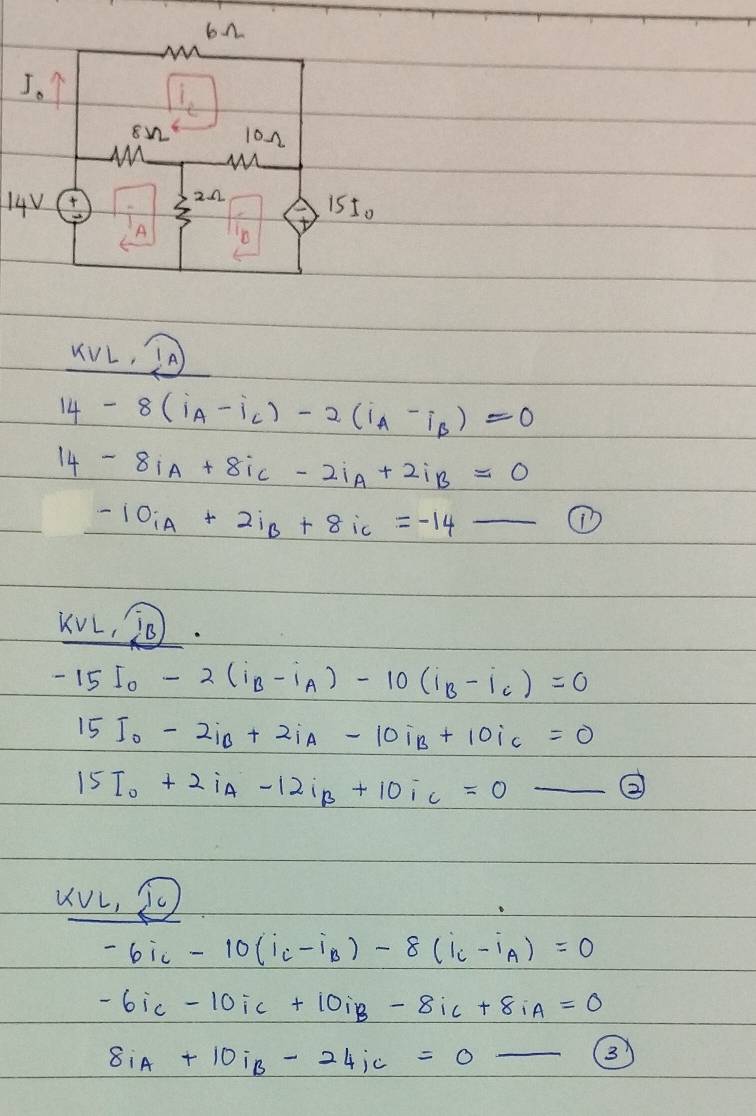 6Ω
I₀
i_C
8Ω
10Ω
14V
+
-
i_A
2Ω
i_B
-
+
15I₀
KVL, i_A
14 - 8(i_A - i_C) - 2(i_A - i_B) = 0
14 - 8i_A + 8i_C - 2i_A + 2i_B = 0
-10i_A + 2i_B + 8i_C = -14 —— ①
KVL, i_B .
-15I₀ - 2(i_B - i_A) - 10(i_B - i_C) = 0
15I₀ - 2i_B + 2i_A - 10i_B + 10i_C = 0
15I₀ + 2i_A - 12i_B + 10i_C = 0 —— ②
KVL, i_C
-6i_C - 10(i_C - i_B) - 8(i_C - i_A) = 0
-6i_C - 10i_C + 10i_B - 8i_C + 8i_A = 0
8i_A + 10i_B - 24i_C = 0 —— ③